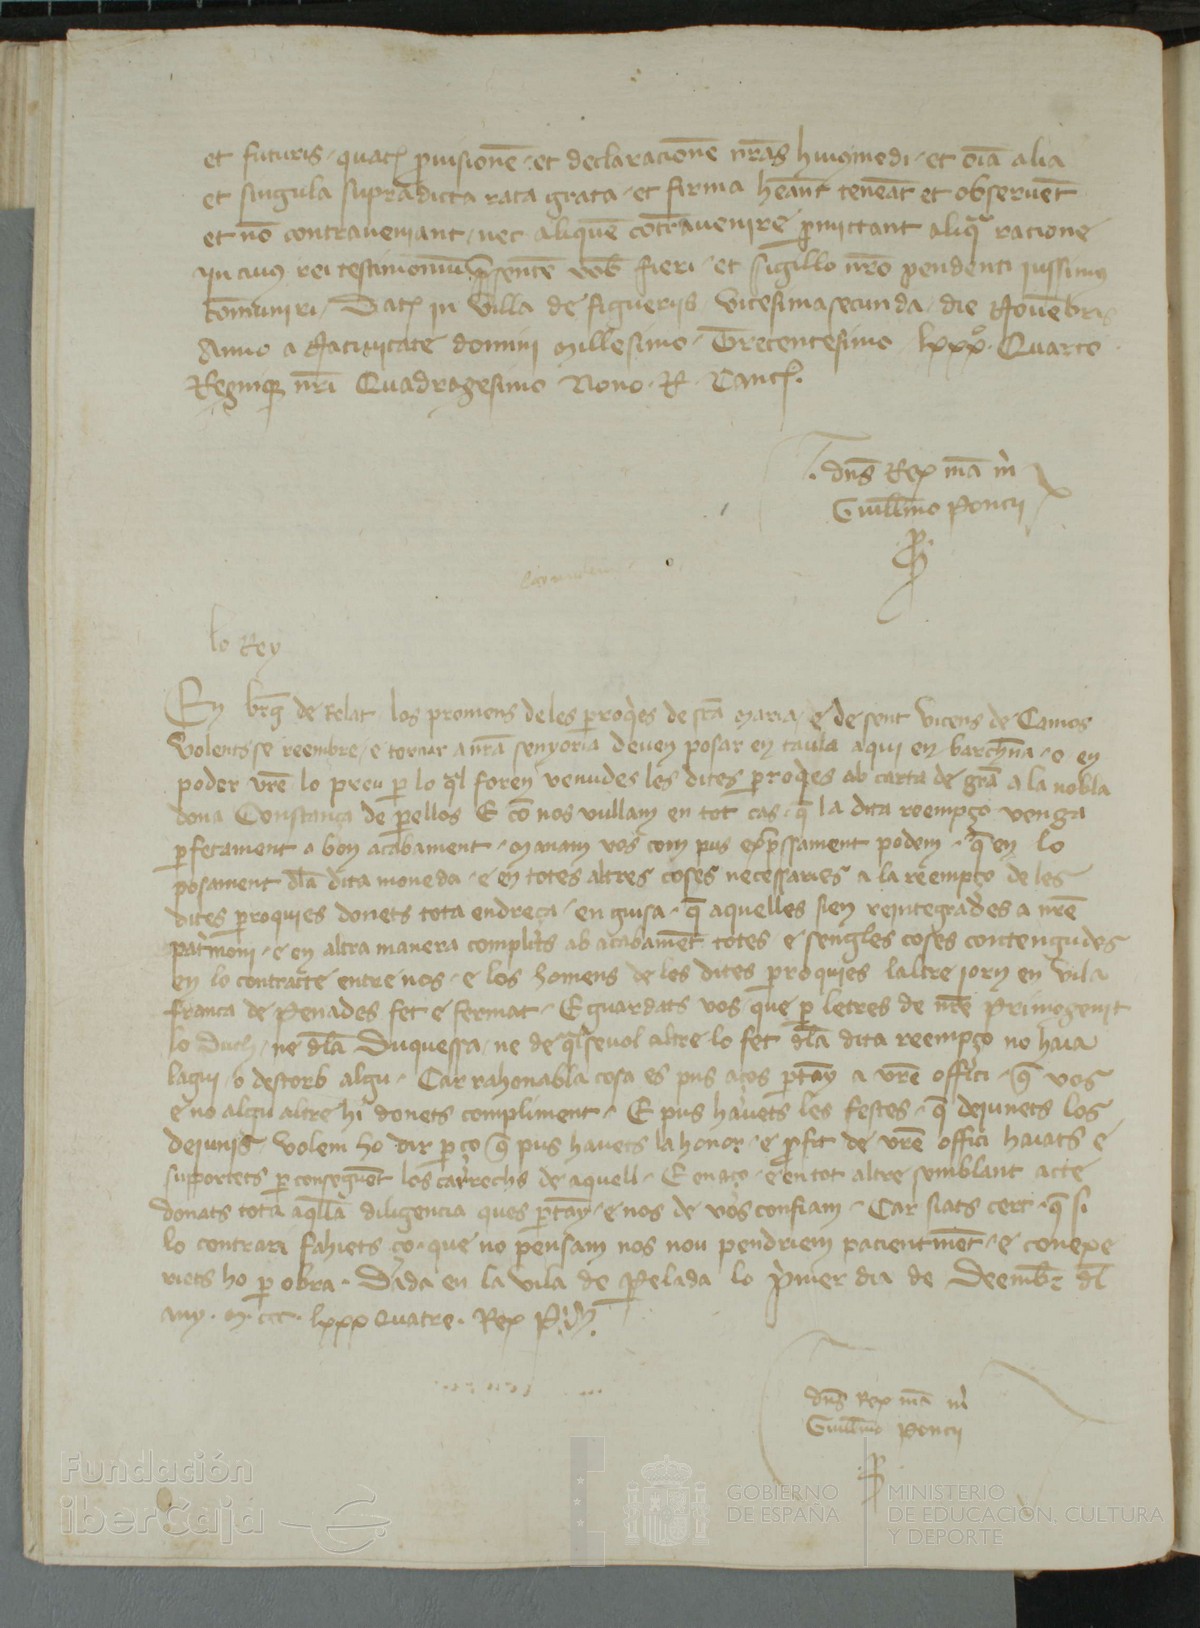 et futuris quatꝰ ꝓuisionē et declaracionē nr̄as huiꝰmodi et oīa alia
et singula supradicta rata grata et firma hēant teneāt et obseruēt
et nō contraueniant nec aliquē cōtrauenire ꝑmittant aliqᵃ racione
In cuiꝰ rei testimoniū p̄sentē vob̄ fieri et sigillo nr̄o pendenti iussimꝰ
cōmuniri Datꝭ in villa de figueriis vicesimasecunda die Nouēbris
Anno a Natiuitate domini Millesimo Trecentesimo lxxxº Quarto
Regniqꝫ nr̄i Quadragesimo Nono R Cancꝭ.
dn̄s Rex mā m
Guill̄mo Poncii
lo Rey
En br̄g de Relat los promens de les ꝑroqͥes de sc̄a Maria e de sent Vicens de Camos
Volentsse reembre e tornar a nr̄a senyoria deuen posar en taula aqui en barchn̄a e en
poder vr̄e lo preu ꝑ lo qͣl foren venudes les dites ꝑroqͥes ab carta de grā a la nobla
dona Constança de ꝑellos E cō nos vullam en tot cas q̄ la dita reempço venga
ꝑfetament a bon acabament Manam vos com pus exp̄ssament podem q̄ en lo
posament dl̄a dita moneda e en totes altres coses necessaries a la reempço de les
dites ꝑroquies donets tota endreça en guisa q̄ aquelles sien reintegrades a nr̄e
patͥmoni e en altra manera complits ab acabamēt totes e sengles coses contengudes
en lo contracte entre nos e los homens de les dites ꝑroquies laltre jorn en Vila
franca de Penades fet e fermat E guardats vos que ꝑ letres de nr̄e Primogenit
lo Duch ne dl̄a Duquessa ne de qͣlseuol altre lo fet dl̄a dita reempço no haia
lagui o destorb algu Car rahonabla cosa es pus aços ꝑtāy a vr̄e offici q̄ vos
e no algu altre hi donets compliment E pus hauets les festes q̄ dejunets los
dejunis Volem ho dir ꝑço q̄ pus hauets la honor e ꝓfit de vr̄e offici haiats e
supportets ꝑ conseguēt los carrechs de aquell E en aço e en tot altre semblant acte
donats tota aql̄a diligencia ques ꝑtāy e nos de vos confiam Car siats cert q̄ si
lo contrari fahiets ço que no pensam nos nou pendriem pacientmēt e conexe
riets ho ꝑ obra Dada en la vila de Pelada lo pͥmer dia de Deembr̄ dl̄
any M ccc lxxx Quatre Rex P.
dn̄s Rex mā m
Guill̄mo Poncii
Fundación
iberCaja
GOBIERNO
DE ESPAÑA
MINISTERIO
DE EDUCACIÓN, CULTURA
Y DEPORTE